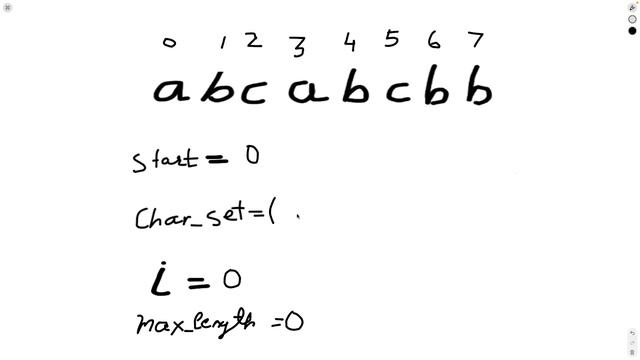 0 1 2 3 4 5 6 7
a b c a b c b b
start = 0
Char_set=(
i = 0
max_length =0